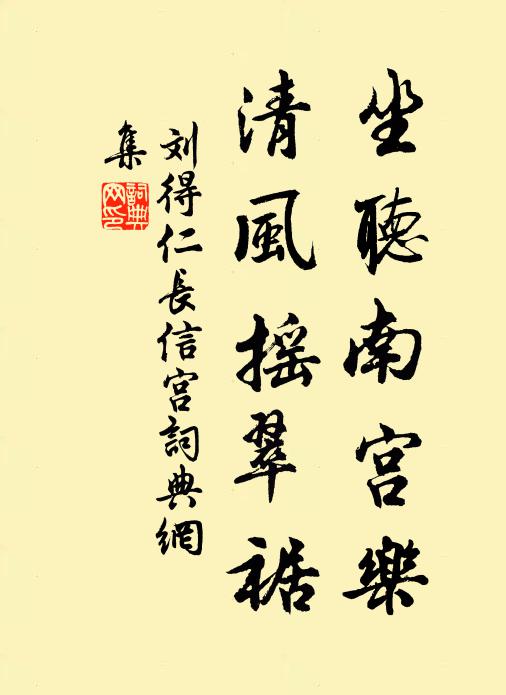 坐聽南宮樂
清風摇翠裾
刘得仁長信宮詞典網
集
詞典網印